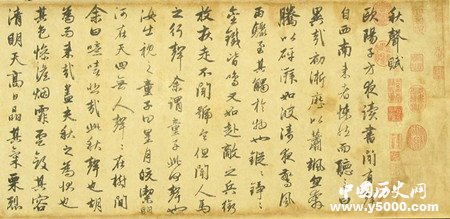 秋聲賦
歐陽子方夜讀書聞有聲
自西南来者悚然而聽之曰
異哉初淅瀝以蕭颯忽奔
騰以砰湃如波濤夜驚風
雨驟至其觸於物也鏦鏦錚錚
金鐵皆鳴又如赴敵之兵銜
枚疾走不聞號令但聞人馬
之行聲余謂童子此何聲也
汝出視之童子曰星月皎潔明
河在天四無人聲聲在樹間
余曰噫嘻悲哉此秋聲也胡
為而来哉盖夫秋之為狀也
其色慘淡煙霏雲斂其容
清明天高日晶其氣栗冽
中国历史网
www.y5000.com